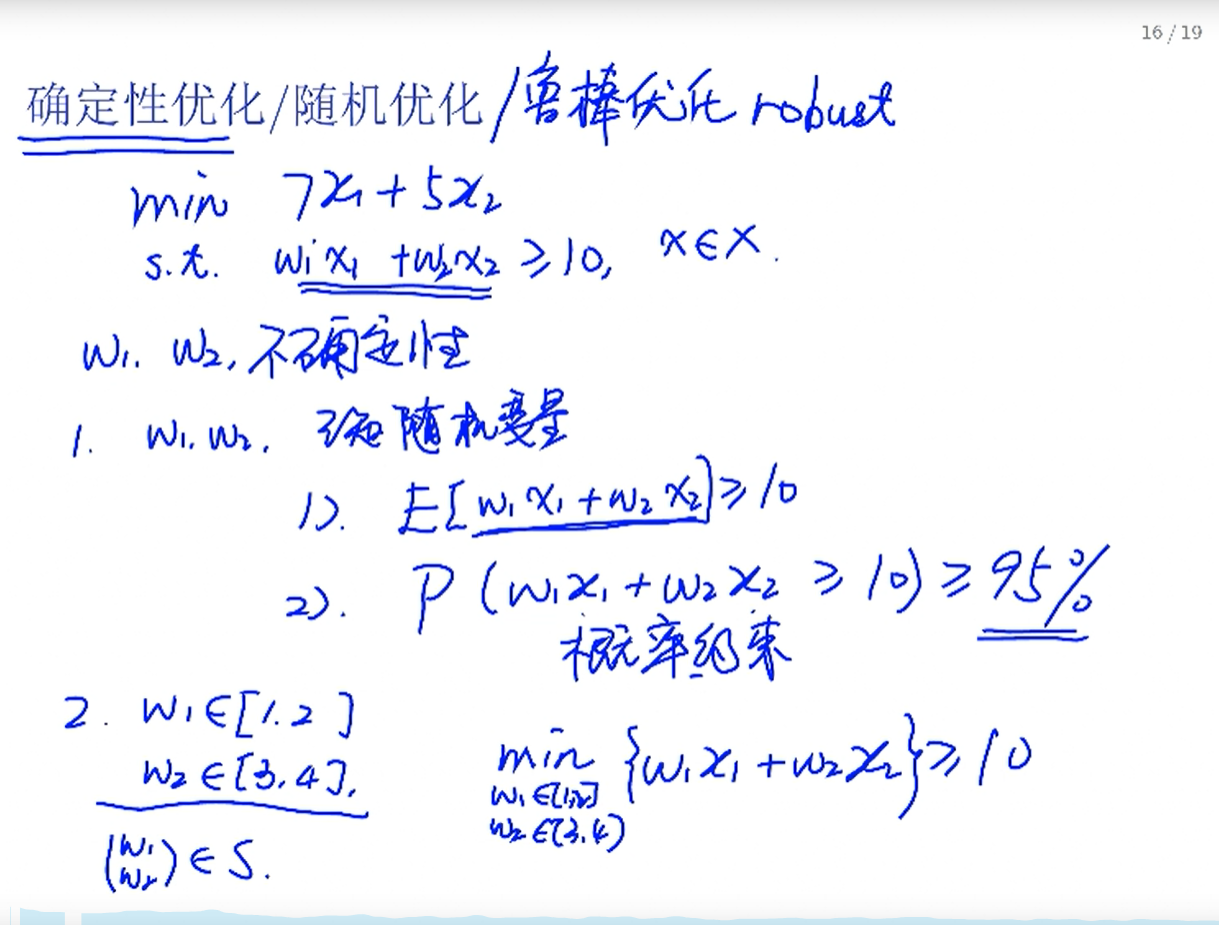 16 / 19
确定性优化/随机优化/鲁棒优化 robust
min 7x₁ + 5x₂
s.t. w₁x₁ + w₂x₂ ≥ 10, x ∈ X.
w₁. w₂, 不确定性
1. w₁. w₂. 随机变量
1). E[w₁x₁ + w₂x₂] ≥ 10
2). P(w₁x₁ + w₂x₂ ≥ 10) ≥ 95%
概率约束
2. w₁ ∈ [1.2]
w₂ ∈ [3,4].
(w₁ w₂) ∈ S.
min {w₁x₁ + w₂x₂} ≥ 10
w₁ ∈ [1,2]
w₂ ∈ [3,4]